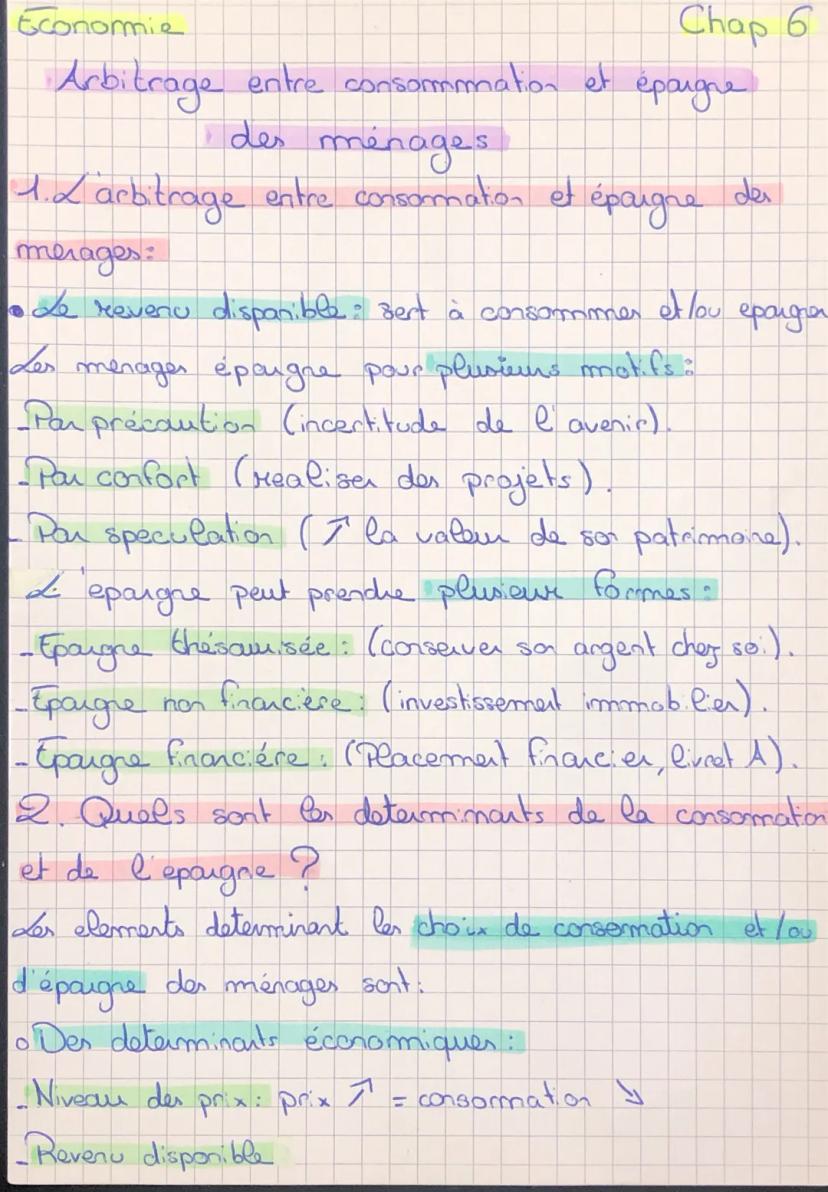 Economie
Chap 6
Arbitrage entre consommmation et épargne
des ménages
1. L'arbitrage entre consommation et épargne des
menages:
• Le revenu disponible: sert à consommer et/ou epargner
Les menages épargne pour plusieurs motifs:
- Par précaution (incertitude de l'avenir).
- Par confort (realiser des projets).
- Par speculation (↗ la valeur de son patrimoine).
L'epargne peut prendre plusieur formes:
- Epargne thésaurisée: (conserver son argent chez soi).
- Epargne non financière: (investissement immobilier).
- Epargne financiére: (Placement financier, livret A).
2. Quels sont les determinants de la consommation
et de l'epargne ?
Les elements determinant les choix de consommation et/ou
d'épargne des ménages sont:
o Des determinants économiques:
- Niveau des prix: prix ↗ = consommation ↘
- Revenu disponible